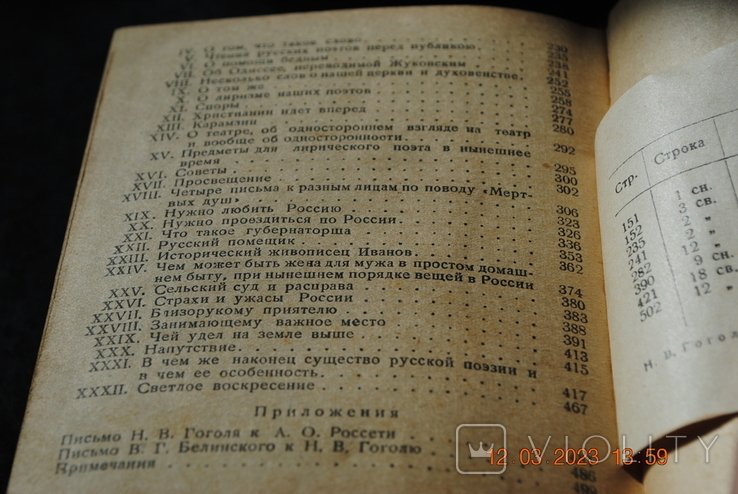 IV. О том, что такое слово 230
V. Чтения русских поэтов перед публикою. 235
VI. О помощи бедным 238
VII. Об Одиссее, переводимой Жуковским 241
VIII. Несколько слов о нашей церкви и духовенстве. 252
IX. О том же 255
X. О лиризме наших поэтов 258
XI. Споры 274
XII. Христианин идет вперед 277
XIII. Карамзин 280
XIV. О театре, об одностороннем взгляде на театр
и вообще об односторонности. 292
XV. Предметы для лирического поэта в нынешнее
время 295
XVI. Советы 300
XVII. Просвещение 302
XVIII. Четыре письма к разным лицам по поводу «Мерт-
вых душ» 306
XIX. Нужно любить Россию 323
XX. Нужно проездиться по России 326
XXI. Что такое губернаторша 336
XXII. Русский помещик 353
XXIII. Исторический живописец Иванов 362
XXIV. Чем может быть жена для мужа в простом домаш-
нем быту, при нынешнем порядке вещей в России 374
XXV. Сельский суд и расправа 380
XXVI. Страхи и ужасы России 383
XXVII. Близорукому приятелю 388
XXVIII. Занимающему важное место 391
XXIX. Чей удел на земле выше 413
XXX. Напутствие 415
XXXI. В чем же наконец существо русской поэзии и
в чем ее особенность. 417
XXXII. Светлое воскресение 467
Приложения
Письмо Н. В. Гоголя к А. О. Россети
Письмо В. Г. Белинского к Н. В. Гоголю 486
Примечания
Стр. Строка
151 1 сн.
152 3 св.
235 2 "
241 2 "
382 12 "
390 9 сн.
421 18 св.
502 12 "
Н. В. Гогол
VIOLITY
12 03 2023 13 59